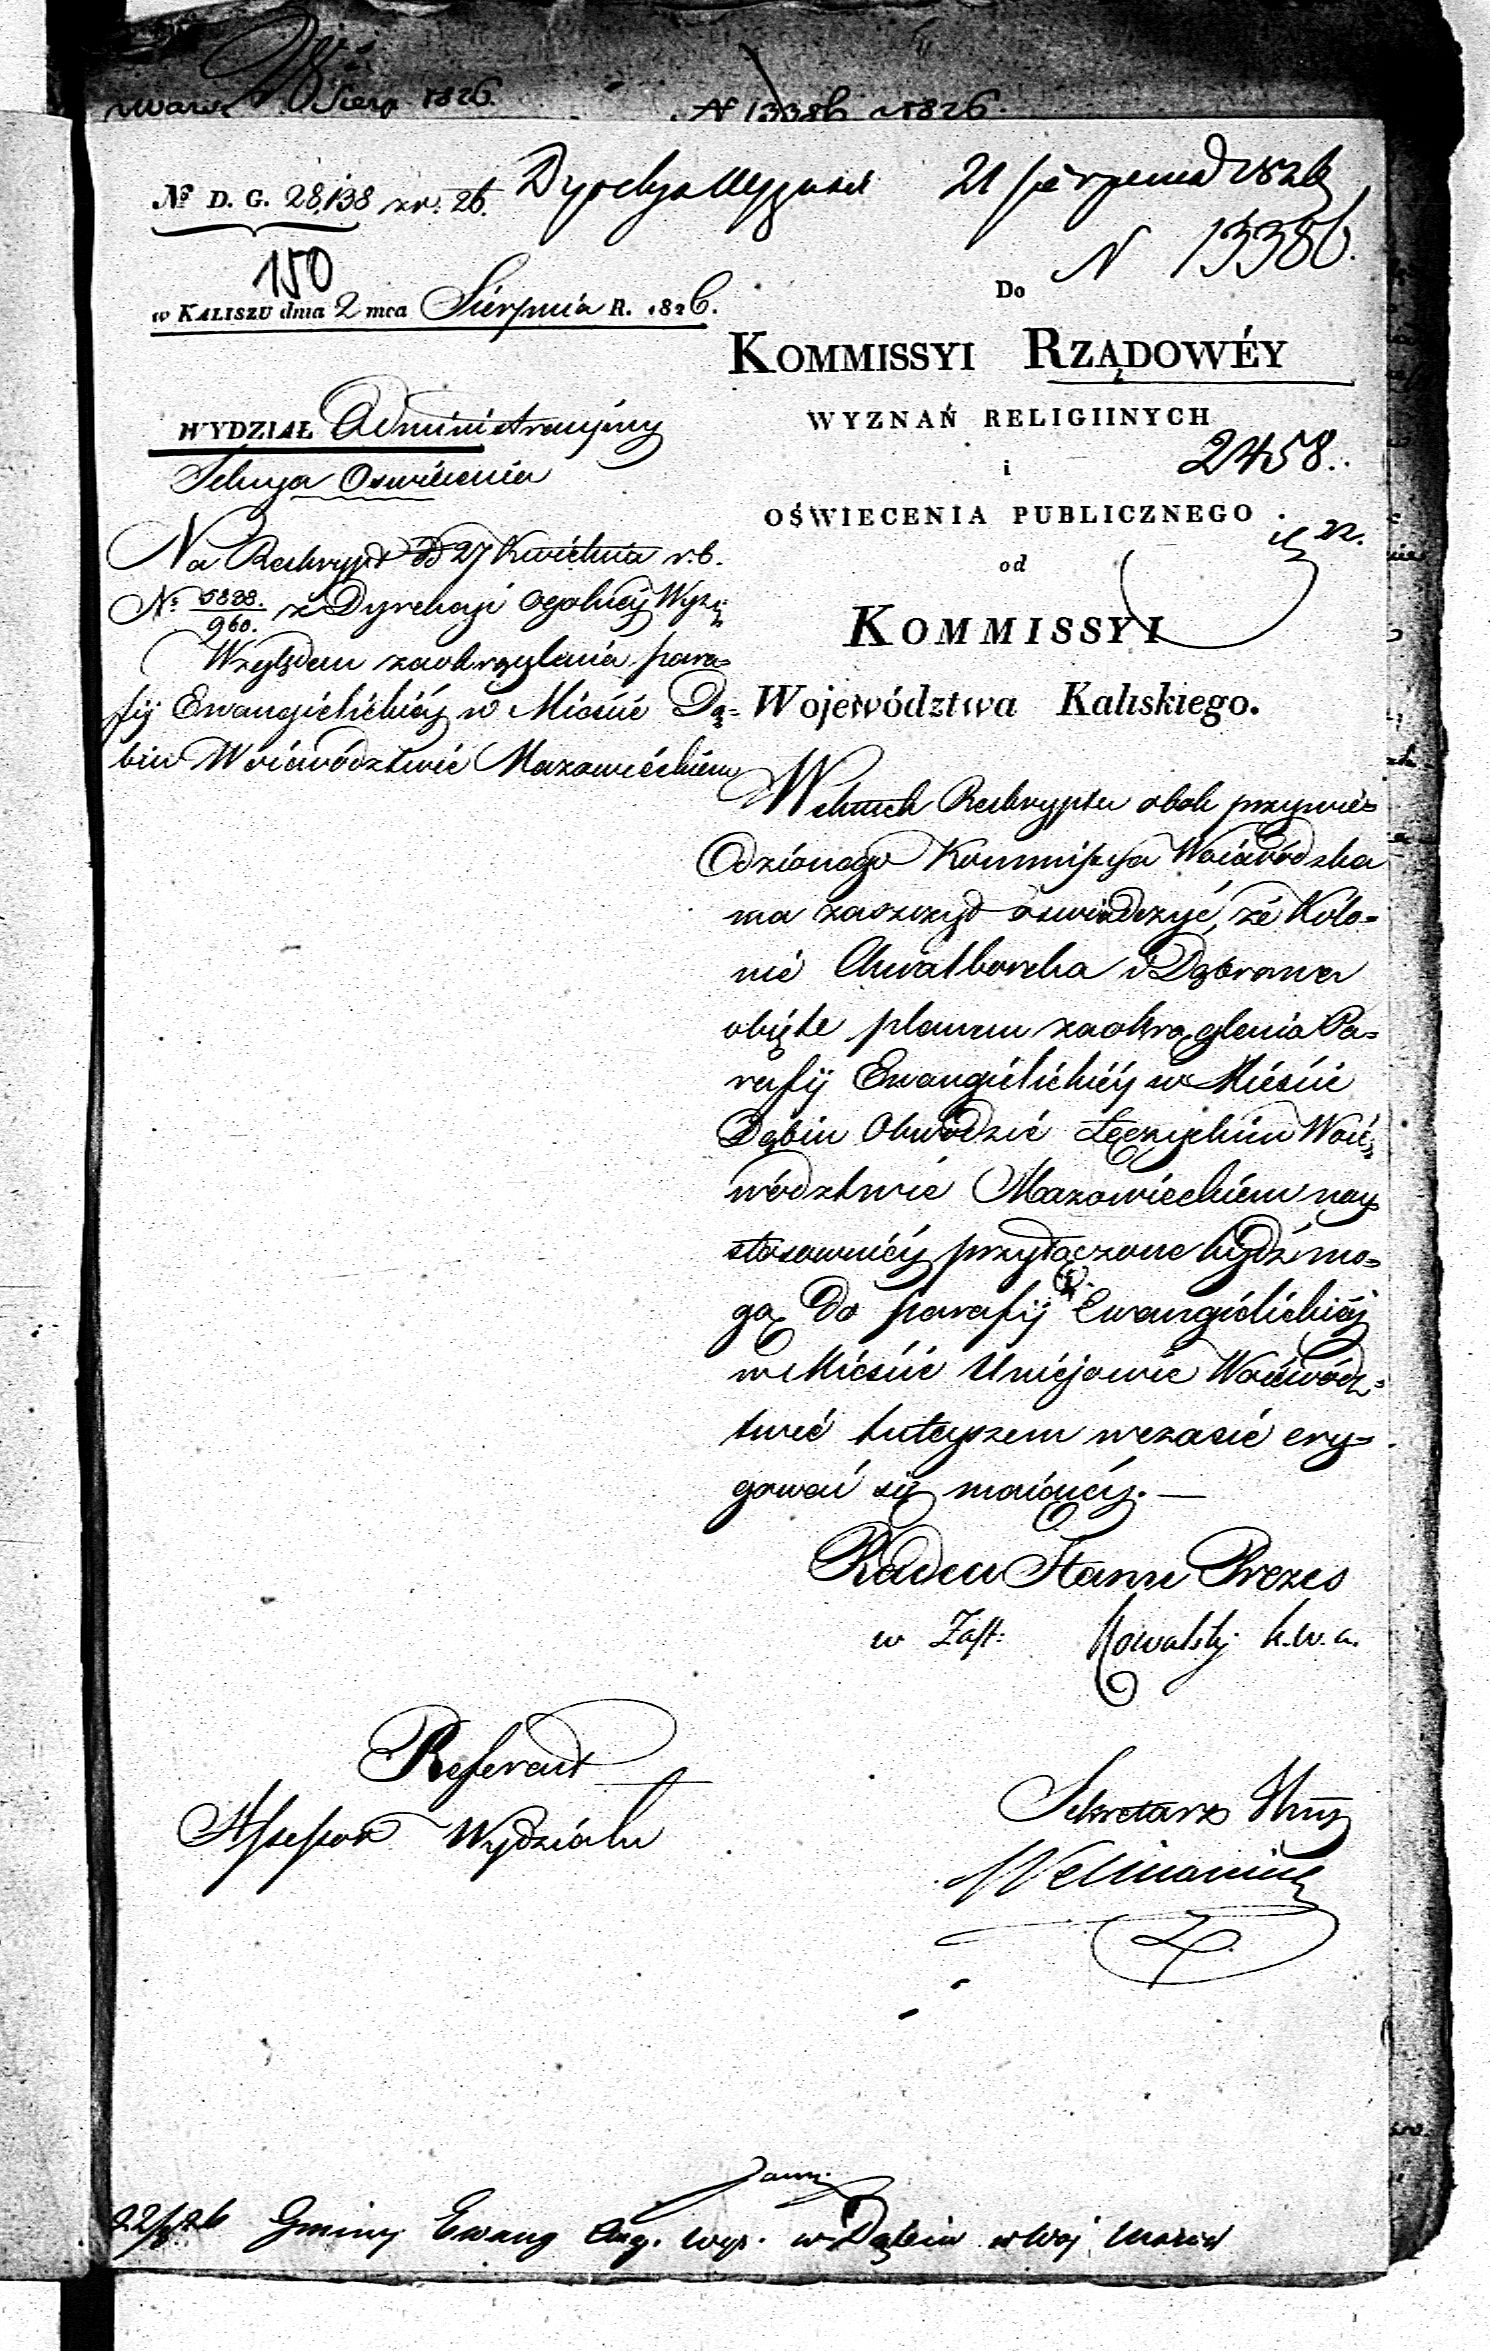 Sierp 1826.
N 13386 1826.
Nº D. G. 28,138 xr. 26.
21 sierpnia 1826
N 13386.
150
w KALISZU dnia 2 mca Sierpnia R. 1826.
Do
KOMMISSYI RZĄDOWÉY
WYZNAŃ RELIGIINYCH
i
2458.
OŚWIECENIA PUBLICZNEGO
od
KOMMISSYI
Województwa Kaliskiego.
WYDZIAŁ Administracyiny
Sekcya Oswiecenia
Na Reskrypt d 27 Kwietnia r.b.
Nº 5828./960. z Dyrekcyi Ogolney Wyzn:
Względem zaokrąglenia para=
fij Ewangielickiéy w Mieście Dą=
biu Woiewództwie Mazowieckiém
Wskutek Reskryptu obok przywie=
dzionego Kommissya Woiewódzka
ma zaszczyt oswiadczyć, że Kolo=
nie Chwalborska i Dąbrowa
obięte planem zaokrąglenia Pa=
rafij Ewangielickiéy w Mieście
Dąbiu Obwodzie Łęczyckim Woie=
wództwie Mazowieckiém nay
stosowniéy przyłączone bydź mo=
gą do parafij Ewangielickiéj
w Mieście Uniejowie Woiewódz=
twie tuteyszem wczasie ery=
gować się maiącéy. —
Radca Stanu Prezes
w Zast: Kowalsky K.W.A.
Referent
Assessor Wydziału
Sekretarz
Gminy Ewang Aug. wyz. w Dąbiu w Woj Mazow